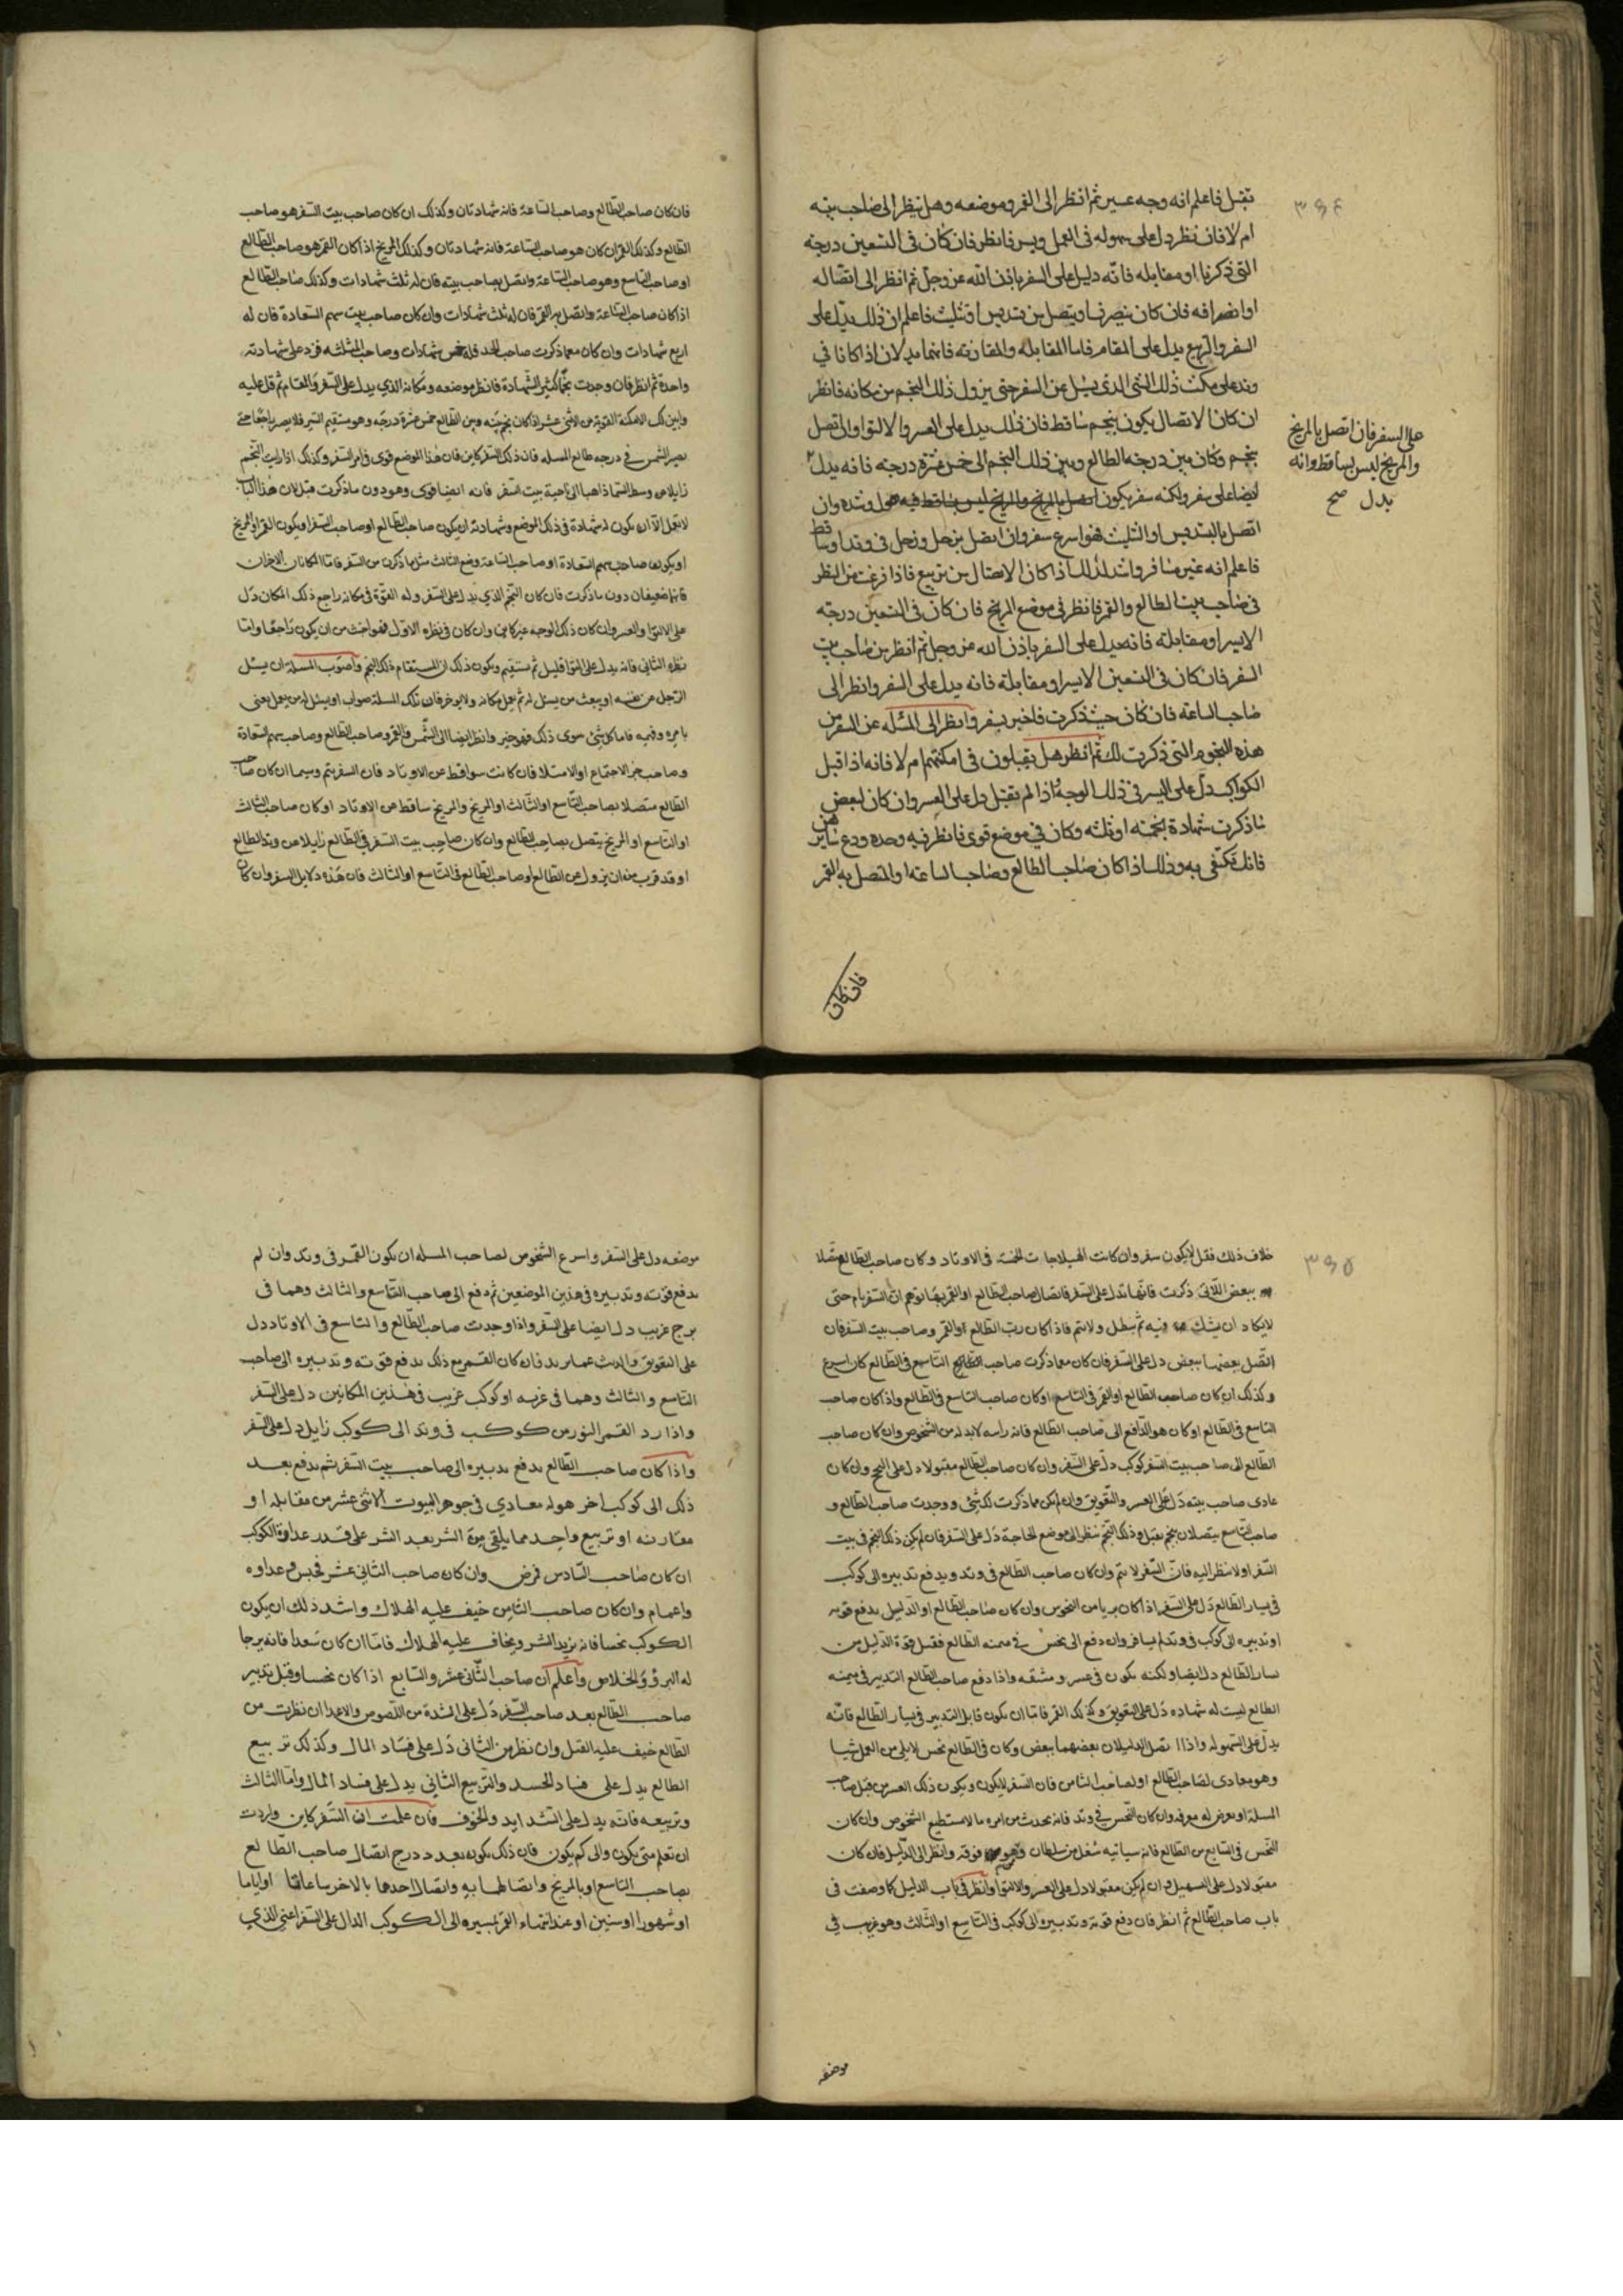 ٣٩٤
تقبل فاعلم انه وجه عسير ثم انظر الى القمر وموضعه وهل ينظر الى صاحب بيته
ام لا فان نظر دل على سهوله فى العمل ويسر فانظر فان كان فى التسعين درجه
التى ذكرنا او مقابله فانه دليل على السفر باذن الله عز وجل ثم انظر الى اتصاله
او انصرافه فان كان ينصرف او يتصل من تسديس او تثليث فاعلم ان ذلك يدل على
السفر والتربيع يدل على المقام فاما المقابله والمقارنه فانهما يدلان اذا كانا في
وتد على مكث ذلك الشى الذى يسئل عن السفر حتى يزول ذلك النجم من مكانه فانظر
ان كان الاتصال يكون بنجم ساقط فان ذلك يدل على العسر والالتوا وان اتصل
بنجم وكان بين درجة الطالع وبين ذلك النجم الى خمس عشرة درجه فانه يدل
ايضا على سفر ولكنه سفر يكون
على السفر فان اتصل بالمريخ
والمريخ ليس بساقط وانه
يدل صح
اتصل بالتسديس او التثليث فهو اسرع سفر وان اتصل بزحل وزحل فى وتد او ساقط
فاعلم انه غير مسافر واشد لذلك اذا كان الاتصال من تربيع فاذا فرغت من النظر
فى صاحب بيت الطالع والقمر فانظر فى موضع المريخ فان كان فى التسعين درجه
الايسر او مقابلته فانه يدل على السفر باذن الله عز وجل ثم انظر من صاحب بيت
السفر فان كان فى التسعين الايسر او مقابلة فانه يدل على السفر وانظر الى
صاحب الساعه فان كان حيث ذكرت فاخبر بسفر وانظر الى المسئله عن السفر من
هذه النجوم التى ذكرت لك ثم انظر هل يقبلون فى امكنتهم ام لا فانه اذا قبل
الكواكب دل على اليسر فى ذلك الوجه واذا لم تقبل دل على العسر وان كان لبعض
ما ذكرت شهادة نجمه او ثلثه وكان في موضع قوى فانظر فيه وحده ودع سايرهن
فانك تكتفى به وذلك اذا كان صاحب الطالع وصاحب الساعه او المتصل به القمر
فان كان
فان كان صاحب الطالع وصاحب الساعة فله شهادتان وكذلك ان كان صاحب بيت السفر هو صاحب
الطالع وكذلك القمر ان كان هو صاحب الساعة فله شهادتان وكذلك المريخ اذا كان القمر هو صاحب الطالع
او صاحب التاسع وهو صاحب الساعة واتصل بصاحب بيته فان له ثلث شهادات وكذلك صاحب الطالع
اذا كان صاحب الساعة واتصل به القمر فان له ثلث شهادات وان كان صاحب بيت سهم السعادة فان له
اربع شهادات وان كان معما ذكرت صاحب الحد فله خمس شهادات وصاحب المثلثه فزد على شهادته
واحدة ثم انظر فان وجدت نجما كثير الشهادة فانظر موضعه ومكانه الذي يدل على السفر والمقام ثم قل عليه
يصير الشمس في درجه طالع المسله فان ذلك السفر كاين فان هذا الموضع قوى فى امر السفر وكذلك اذا رايت النجم
زايلا من وسط السما ذاهبا الى ناحية بيت السفر فانه ايضا قوى وهو دون ما ذكرت قبل لان هذا الباب
لا يقبل الا ان يكون له شهادة فى ذلك الموضع وشهادته ان يكون صاحب الطالع او صاحب السفر او يكون القمر او المريخ
او يكونا صاحب سهم السعادة او صاحب الساعة وضع الثالث مثل ما ذكرن من السفر فاما المكانان الاخران
فانهما ضعيفان دون ما ذكرت فان كان النجم الذي يدل على السفر وله القوة فى مكانه راجع ذلك المكان دل
على الالتوا والعسر وان كان ذلك الوجه غير كاين وان كان فى نظره الاول فهو اخبث من ان يكون راجعا واما
نظره الثانى فانه يدل على التوا قليل ثم يستقيم ويكون ذلك ان استقام ذلك النجم واصوب المسله ان يسئل
الرجل عن نفسه او يبعث من يسئل له ثم يعمل مكانه ولا يوخر فان تلك المسلة صواب او يسئل له من يعمل يعنى
بامره وفيه فاما كل شئ سوى ذلك فهو خبر وانظر ايضا الى الشمس فالقمر وصاحب الطالع وصاحب سهم السعادة
وصاحب جزء الاجتماع او الامتلا فان كانت سواقط عن الاوتاد فان السفر يتم وسيما ان كان صاحب
الطالع متصلا بصاحب التاسع او الثالث او المريخ والمريخ ساقط عن الاوتاد او كان صاحب الثالث
او التاسع او المريخ يتصل بصاحب الطالع وان كان صاحب بيت السفر فى الطالع زايلا عن وتد الطالع
او قد قرب من ان يزول عن الطالع او صاحب الطالع فى التاسع او الثالث فان هذه دلايل السفر وان كان
٣٩٥
خلاف ذلك فقل لا يكون سفر وان كانت الهيلاجات الخمسة فى الاوتاد وكان صاحب الطالع متصلا
ببعض اللاتى ذكرت فانها تدل على السفر فاتصال صاحب الطالع او القمر بها توهم ان السفر يام حتى
لا يكاد ان يشك فيه ثم يبطل ولا يتم فاذا كان رب الطالع او القمر وصاحب بيت السفر فان
اتصل بعضها ببعض دل على السفر فان كان معما ذكرت صاحب التاسع فى الطالع كان اسرع
وكذلك ان كان صاحب الطالع او القمر فى التاسع او كان صاحب التاسع فى الطالع واذا كان صاحب
التاسع فى الطالع او كان هو الدافع الى صاحب الطالع فانه راسه لا بد له من الشخوص وان كان صاحب
الطالع الى صاحب بيت السفر كوكب دل على السفر وان كان صاحب الطالع مقبولا دل على النجح وان كان
عادى صاحب بيته دل على العسر والتعويق وان لم يكن مما ذكرت لك شئ ووجدت صاحب الطالع و
صاحب التاسع يتصلان بنجم يقبل وذلك النجم ينظر الى موضع الحاجة دل على السفر فان لم يكن ذلك النجم فى بيت
السفر او لا ينظر اليه فان السفر لا يتم وان كان صاحب الطالع فى وتد ويدفع تدبيره الى كوكب
فى يسار الطالع دل على السفر اذا كان بريا من النحوس وان كان صاحب الطالع او الدليل يدفع قوته
او تدبيره الى كوكب فى وتد لم يسافر وان دفع الى نحس في ميمنه الطالع فقبل قوة الدليل من
يسار الطالع دل ايضا ولكنه يكون فى عسر ومشقه واذا دفع صاحب الطالع التدبير فى ميمنه
الطالع ليست له شهاده دل على التعويق وكذلك القمر فاما ان يكون قابل التدبير فى يسار الطالع فانه
يدل على السهوله واذا اتصل الدليلان بعضهما ببعض وكان فى الطالع نحس لا يلى من العمل شيا
وهو معادى لصاحب الطالع او لصاحب الثامن فان السفر لا يكون ويكون ذلك العسر من قبل صاحب
المسلة او يعرض له معرفه وان كان النحس فى وتد فانه يحدث من امره ما لا يستطيع الشخوص وان كان
النحس فى السابع من الطالع فانه سياتيه شغل من سلطان وهو فوقه وانظر الى الدليل فان كان
مقبولا دل على التسهيل وان لم يكن مقبولا دل على العسر والالتوا وانظر فى باب الدليل كما وصفت فى
باب صاحب الطالع ثم انظر فان دفع قوته وتدبيره الى كوكب فى التاسع او الثالث وهو غريب في
موضعه
موضعه دل على السفر واسرع الشخوص لصاحب المسله ان يكون القمر فى وتد وان لم
يدفع قوته وتدبيره فى هذين الموضعين ثم دفع الى صاحب التاسع والثالث وهما فى
برج غريب دل ايضا على السفر واذا وجدت صاحب الطالع والتاسع فى الاوتاد دل
على التعويق والريث عما يريد فان كان القمر مع ذلك يدفع قوته وتدبيره الى صاحب
التاسع والثالث وهما فى غربه او كوكب غريب فى هذين المكانين دل على السفر
واذا رد القمر النور من كوكب فى وتد الى كوكب زايل دل على السفر
واذا كان صاحب الطالع يدفع تدبيره الى صاحب بيت السفر ثم يدفع بعد
ذلك الى كوكب اخر هو له معادي في جوهر البيوت الاثنى عشر من مقابله او
مقارنه او تربيع واحد مما يلقى من الشر بعد الشر على قدر عداوة الكوكب
ان كان صاحب السادس فمرض وان كان صاحب الثانى عشر فحبس وعداوه
واغمام وان كان صاحب الثامن خيف عليه الهلاك واشد ذلك ان يكون
الكوكب نحسا فانه يزيد الشر ويخاف عليه الهلاك فاما ان كان سعدا فانه يرجا
له البرؤ والخلاص واعلم ان صاحب الثانى عشر والسابع اذا كان نحسا وقبل تدبير
صاحب الطالع بعد صاحب السفر دل على الشدة من اللصوص والاعدا ان نظرت من
الطالع خيف عليه القتل وان نظر من الثانى دل على فساد المال وكذلك تربيع
الطالع يدل على فساد الجسد والتربيع الثاني يدل على فساد المال واما الثالث
وتربيعه فانه يدل على الشدايد والخوف فان علمت ان السفر كاين واردت
ان تعلم متى يكون والى كم يكون فان ذلك يكون بعدد درج اتصال صاحب الطالع
بصاحب التاسع او بالمريخ واتصالهما به واتصال احدهما بالاخر ساعات او اياما
او شهورا او سنين او عند انتهاء القمر بمسيره الى الكوكب الدال على السفر اعنى الذي